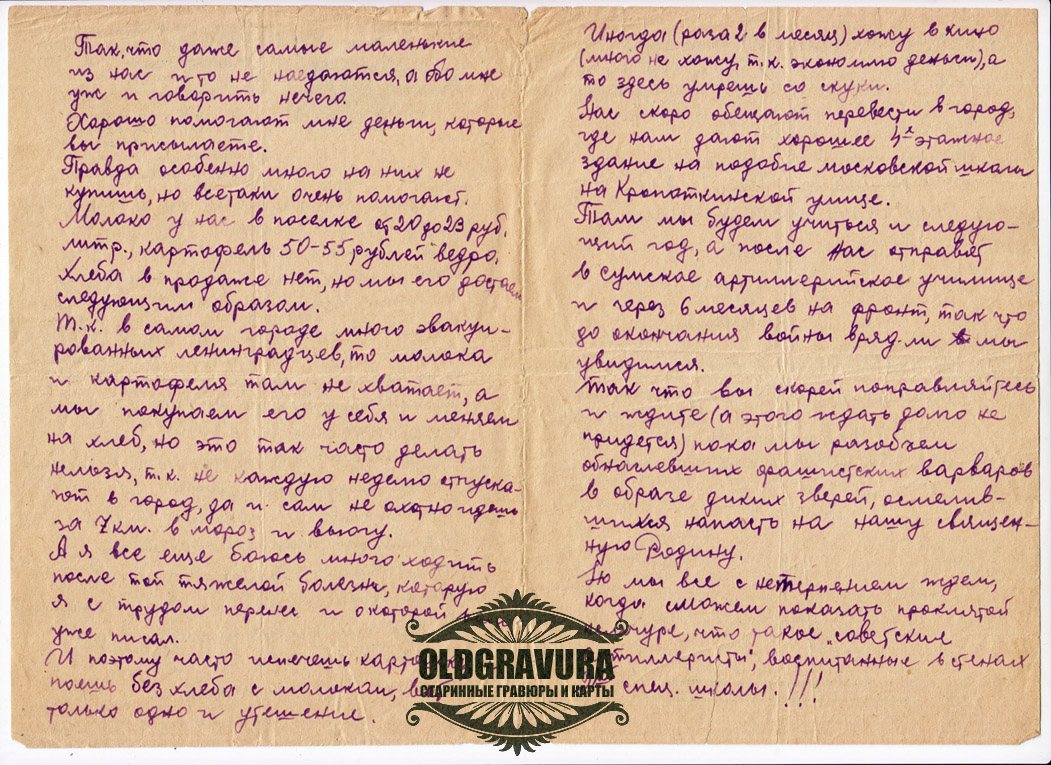 Так, что даже самые маленькие
из нас и то не наедаются, а обо мне
уж и говорить нечего.
Хорошо помогают мне деньги, которые
вы присылаете.
Правда особенно много на них не
купишь, но всетаки очень помогают.
Молоко у нас в поселке от 20 до 23 руб.
литр., картофель 50-55 рублей ведро,
хлеба в продаже нет, но мы его достаем
следующим образом.
Т.к. в самом городе много эвакуи-
рованных ленинградцев, то молока
и картофеля там не хватает, а
мы покупаем его у себя и меняем
на хлеб, но это так часто делать
нельзя, т.к. не каждую неделю отпуска-
ют в город, да и сам не охотно идешь
за 7 км. в мороз и вьюгу.
А я все еще боюсь много ходить
после той тяжелой болезни, которую
я с трудом перенес и о которой
уже писал.
И поэтому часто испечешь
поешь без хлеба с молоком,
только одно и утешение.
Иногда (раза 2 в месяц) хожу в кино
(много не хожу, т.к. экономлю деньги), а
то здесь умрешь со скуки.
Нас скоро обещают перевести в город,
где нам дают хорошее 4х этажное
здание на подобие московской школы
на Кропоткинской улице.
Там мы будем учиться и следую-
щий год, а после нас отправят
в сумское артиллерийское училище
и через 6 месяцев на фронт, так что
до окончания войны вряд-ли мы
увидимся.
Так что вы скорей поправляйтесь
и ждите (а этого ждать долго не
придется) пока мы разобъем
обнаглевших фашистских варваров
в образе диких зверей, осмелив-
шихся напасть на нашу священ-
ную Родину.
Но мы все с нетерпением ждем,
когда сможем показать проклятой
что такое "советские
артиллеристы", воспитанные в стенах
спец. школы.!!!
OLDGRAVURA
СТАРИННЫЕ ГРАВЮРЫ И КАРТЫ